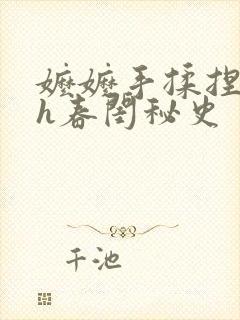 嬷嬷手揉捏
h春闺秘史
千池